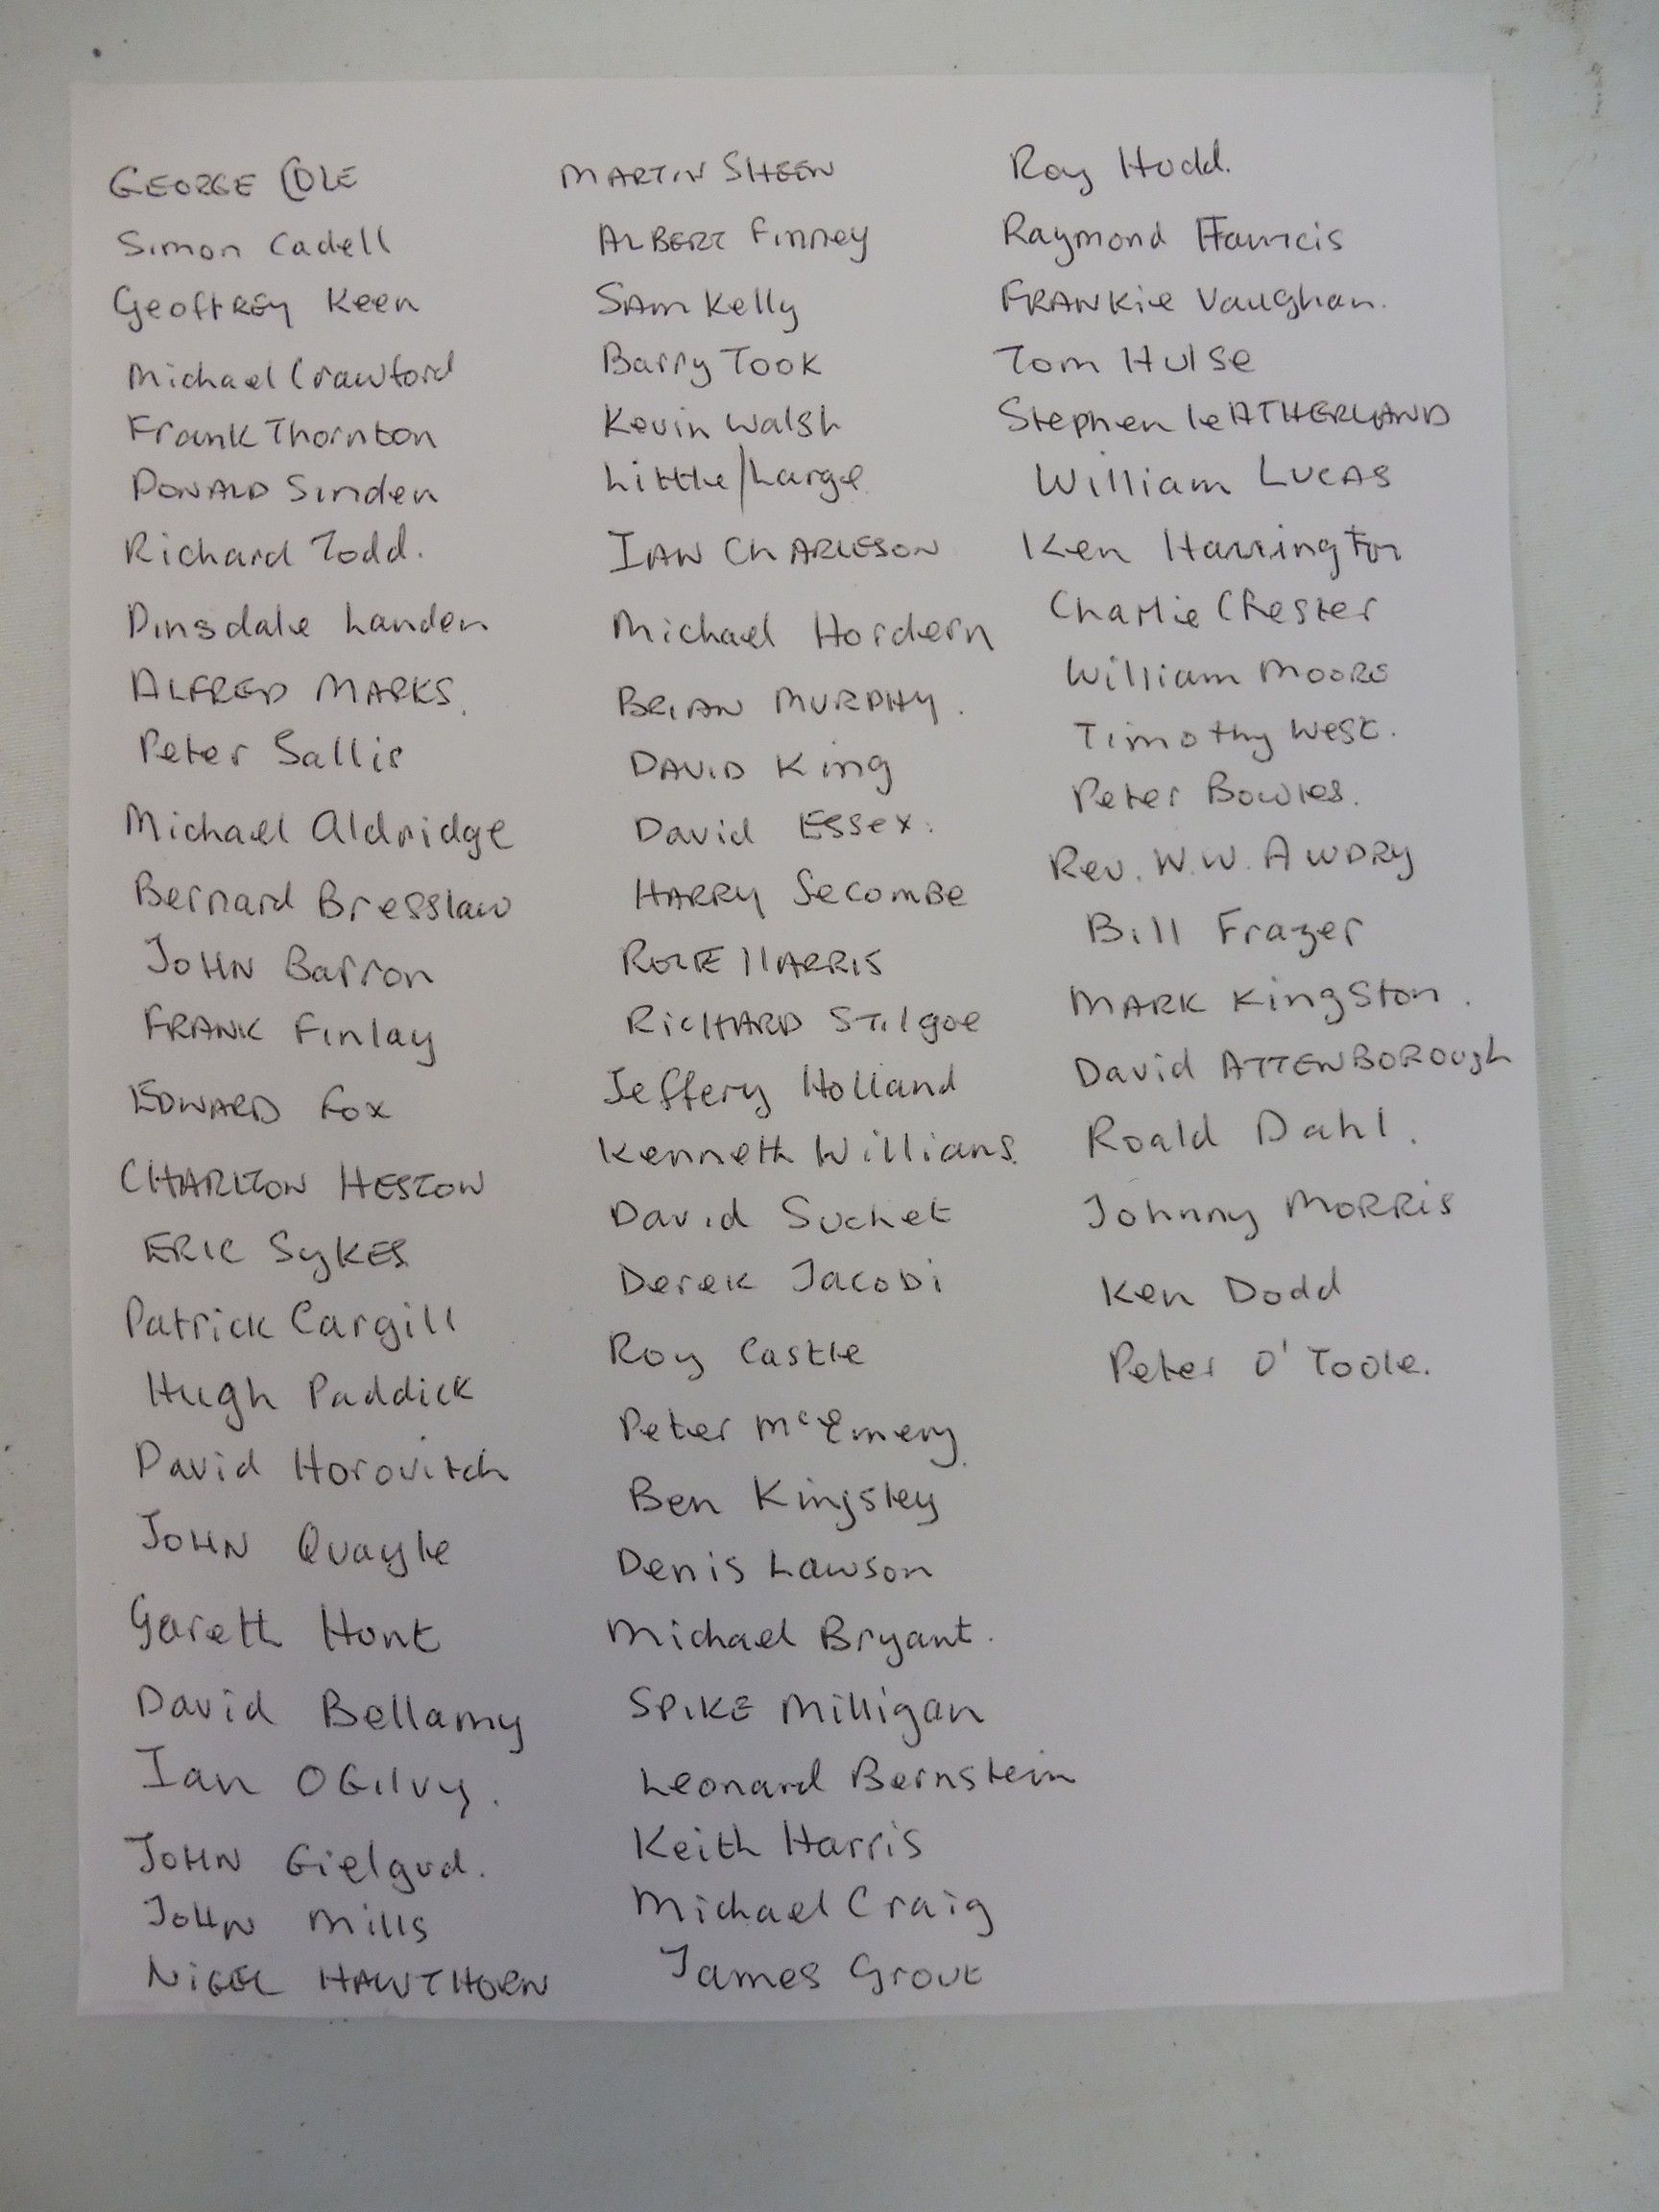 GEORGE COLE
Simon Cadell
Geoffrey Keen
Michael Crawford
Frank Thornton
DONALD Sinden
Richard Todd.
Dinsdale Landen
ALFRED MARKS.
Peter Sallis
Michael Aldridge
Bernard Bresslaw
JOHN Barron
FRANK Finlay
EDWARD Fox
CHARLTON HESTON
ERIC SYKES
Patrick Cargill
Hugh Paddick
David Horovitch
JOHN Quayle
Gareth Hunt
David Bellamy
Ian OGilvy.
JOHN Gielgud.
JOHN Mills
NIGEL HAWTHORN
MARTIN SHEEN
ALBERT Finney
SAM Kelly
Barry Took
Kevin Walsh
Little/Large
IAN CHARLESON
Michael Hordern
BRIAN MURPHY.
DAVID King
David Essex.
HARRY SecomBe
ROLF HARRIS
RICHARD Stilgoe
Jeffery Holland
Kenneth Williams.
David Suchet
Derek Jacobi
Roy Castle
Peter McEnery.
Ben Kingsley
Denis Lawson
Michael Bryant.
SPIKE Milligan
Leonard Bernstein
Keith Harris
Michael Craig
James Grout
Roy Hudd.
Raymond Francis
FRANKie Vaughan.
Tom Hulse
Stephen leATHERLAND
William LUCAS
Ken Harrington
Charlie Chester
William MOORE
Timothy West.
Peter Bowles.
Rev. W.W. AWDRY
Bill Frazer
MARK Kingston.
David ATTENBOROUgh
Roald Dahl.
Johnny MORRIS
Ken Dodd
Peter O'Toole.